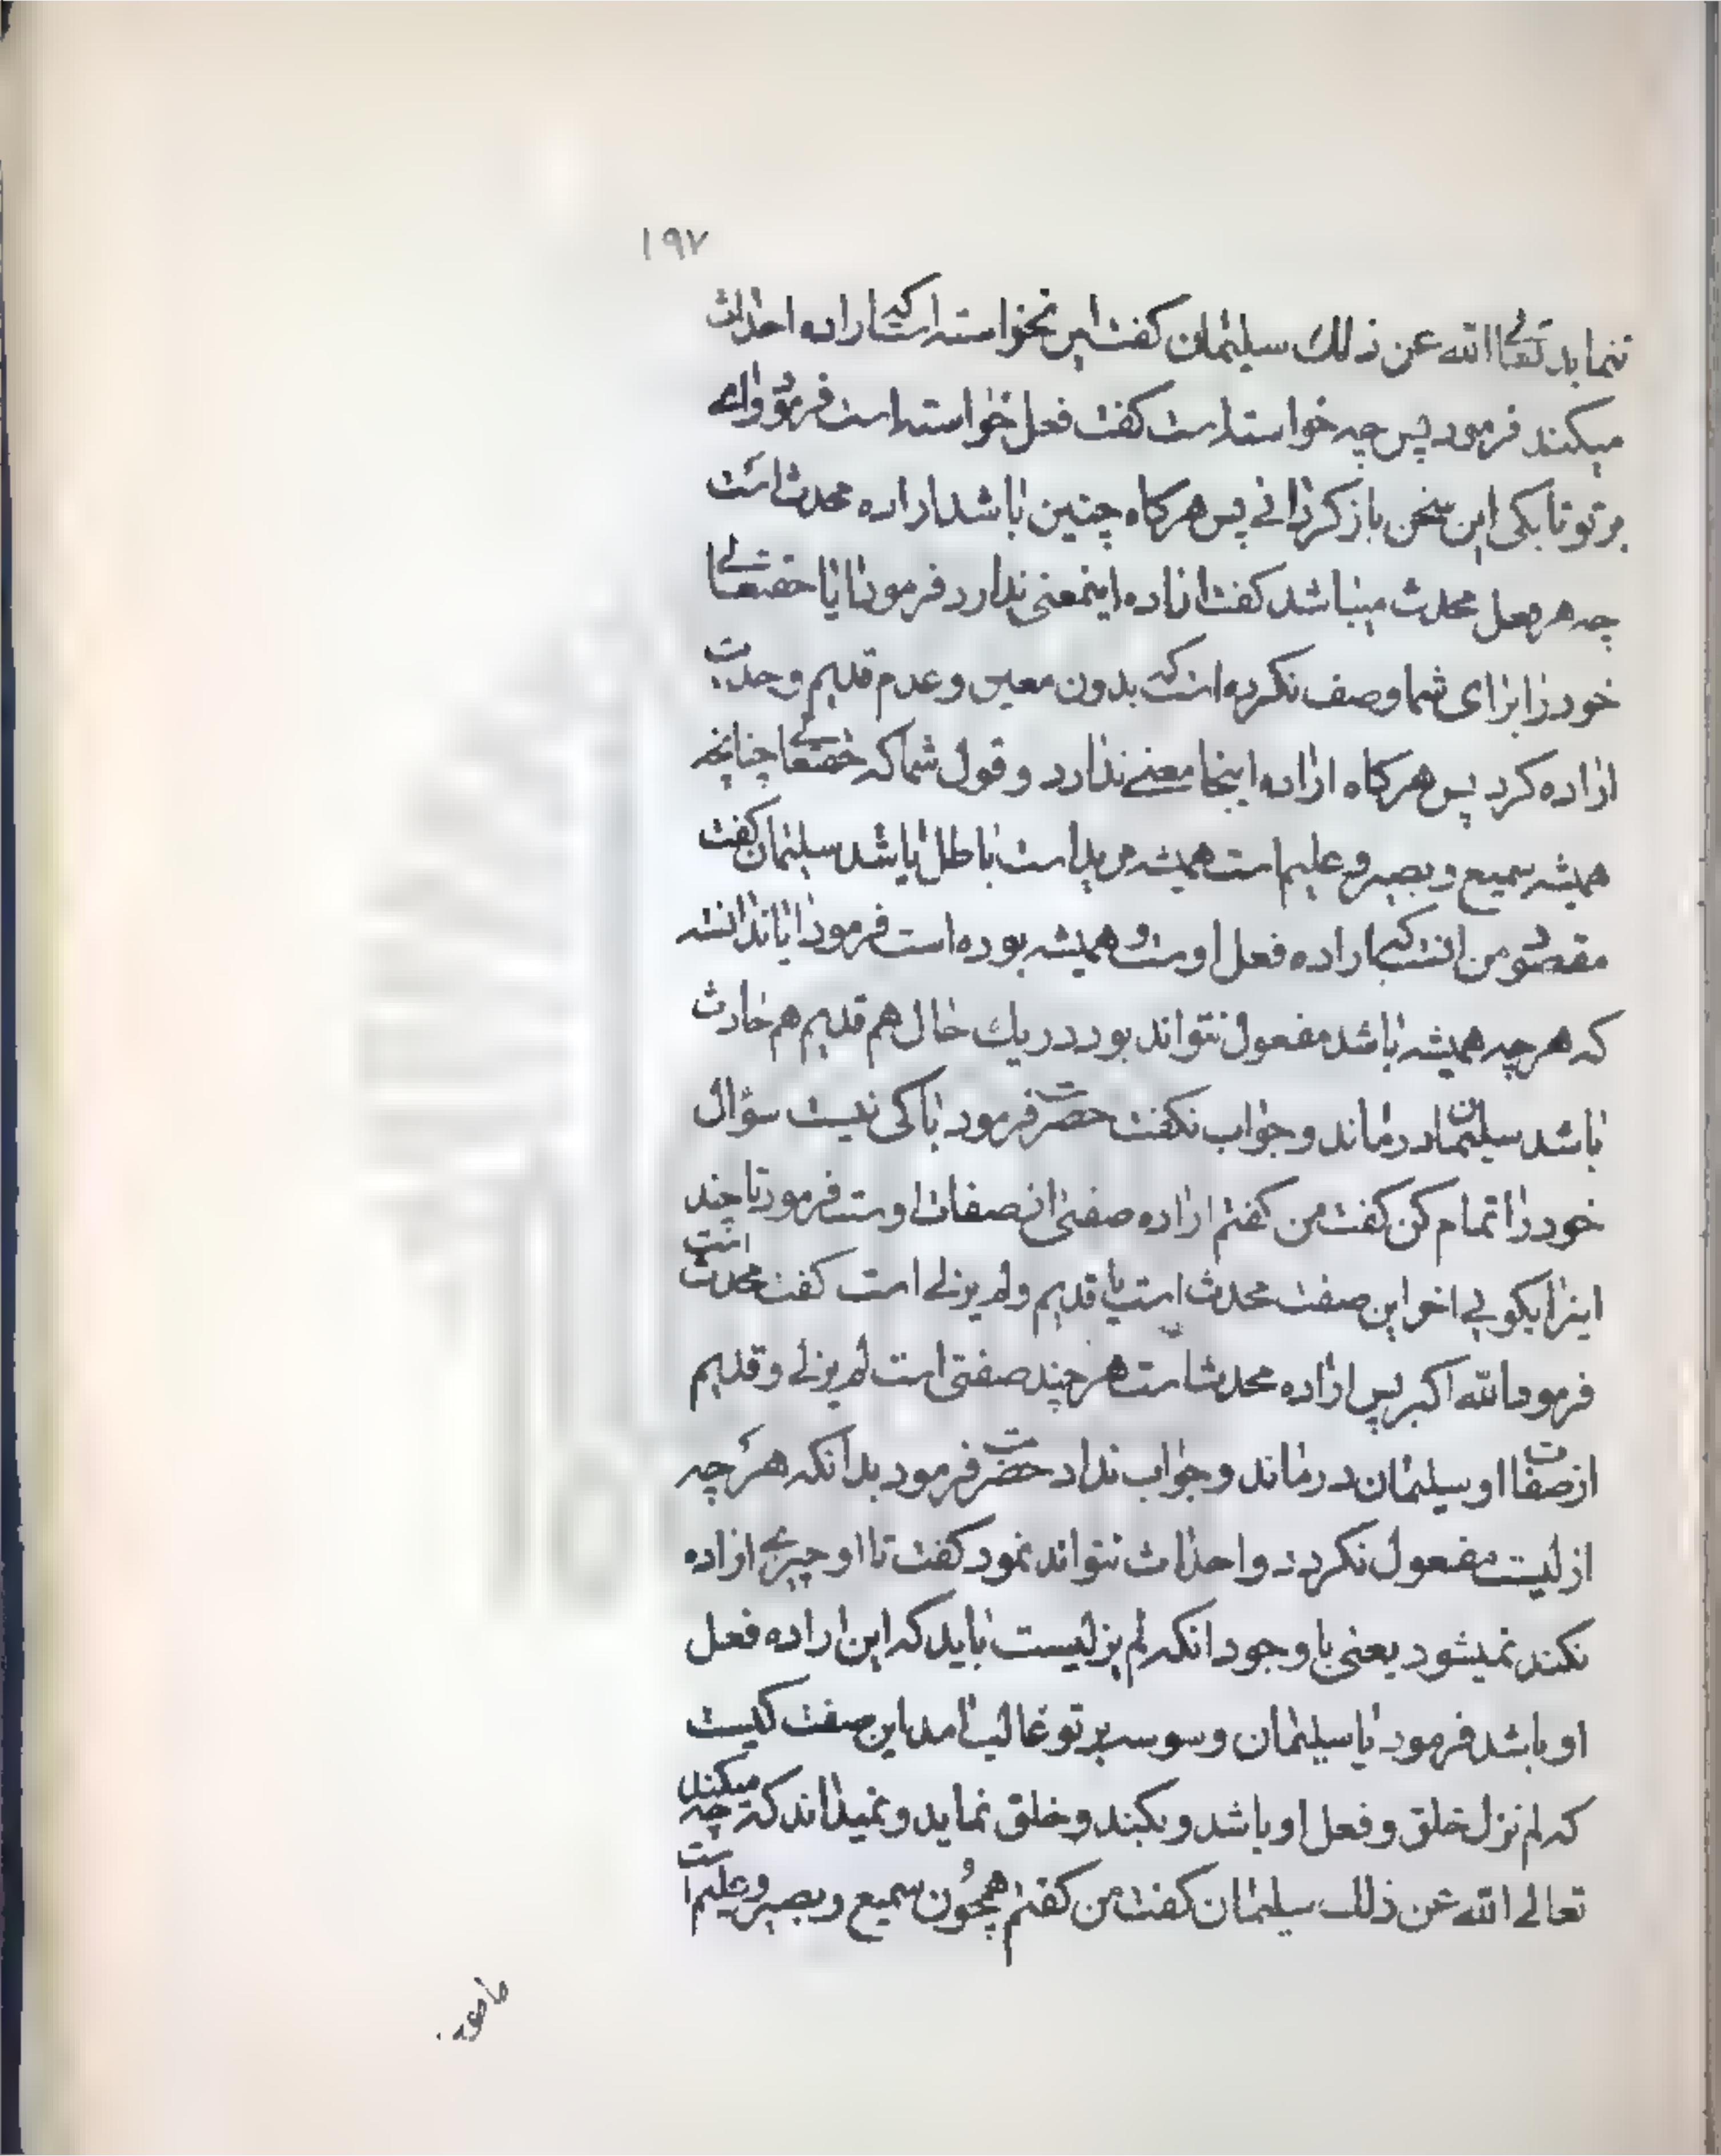 ۱۹۷
ننماید تعالی الله عن ذلک سلیمان کفت این نخواسته است که اراده احداث
میکند فرمود پس چه خواسته است کفت فعل خواسته است فرمود وای
بر تو تا بکی این سخن باز کردانی پس هرکاه چنین باشد اراده محدث است
چه هر فعل محدث میباشد کفت اراده اینمعنی ندارد فرمود ایا حقتعالی
خود را برای شما وصف نکرده است که بدون معین و عدم قدیم وحدیت
اراده کرد پس هرکاه اراده اینجا معنی ندارد و قول شما که حقتعالی چنانچه
همیشه سمیع و بصیر و علیم است همیشه مرید است باطل باشد سلیمان کفت
مقصود من انست که اراده فعل اوست و همیشه بوده است فرمود ایا ندانسته
که هر چه همیشه باشد مفعول نتواند بود در یک حال هم قدیم هم حادث
باشد سلیمان درماند و جواب نکفت حضرت فرمود باکی نیست سؤال
خود را تمام کن کفت من کفتم اراده صفتی از صفات اوست فرمود تا چند
اینرا بکویی اخر این صفت محدث است یا قدیم و لم یزلی است کفت محدث است
فرمود الله اکبر پس اراده محدث است هر چند صفتی است لم یزلی و قدیم
از صفات او سلیمان درماند و جواب نداد حضرت فرمود بدانکه هر چه
ازلیست مفعول نکردد و احداث نتواند نمود کفت تا او چیزی اراده
نکند نمیشود یعنی با وجود انکه لم یزلیست باید که این اراده فعل
او باشد فرمود یا سلیمان وسوسه بر تو غالب آمد این صفت کیست
که لم نزل خلق و فعل او باشد و بکند و خلق نماید و نمیداند که چه میکند
تعالی الله عن ذلک سلیمان کفت من کفتم همچون سمیع و بصیر و علیم است